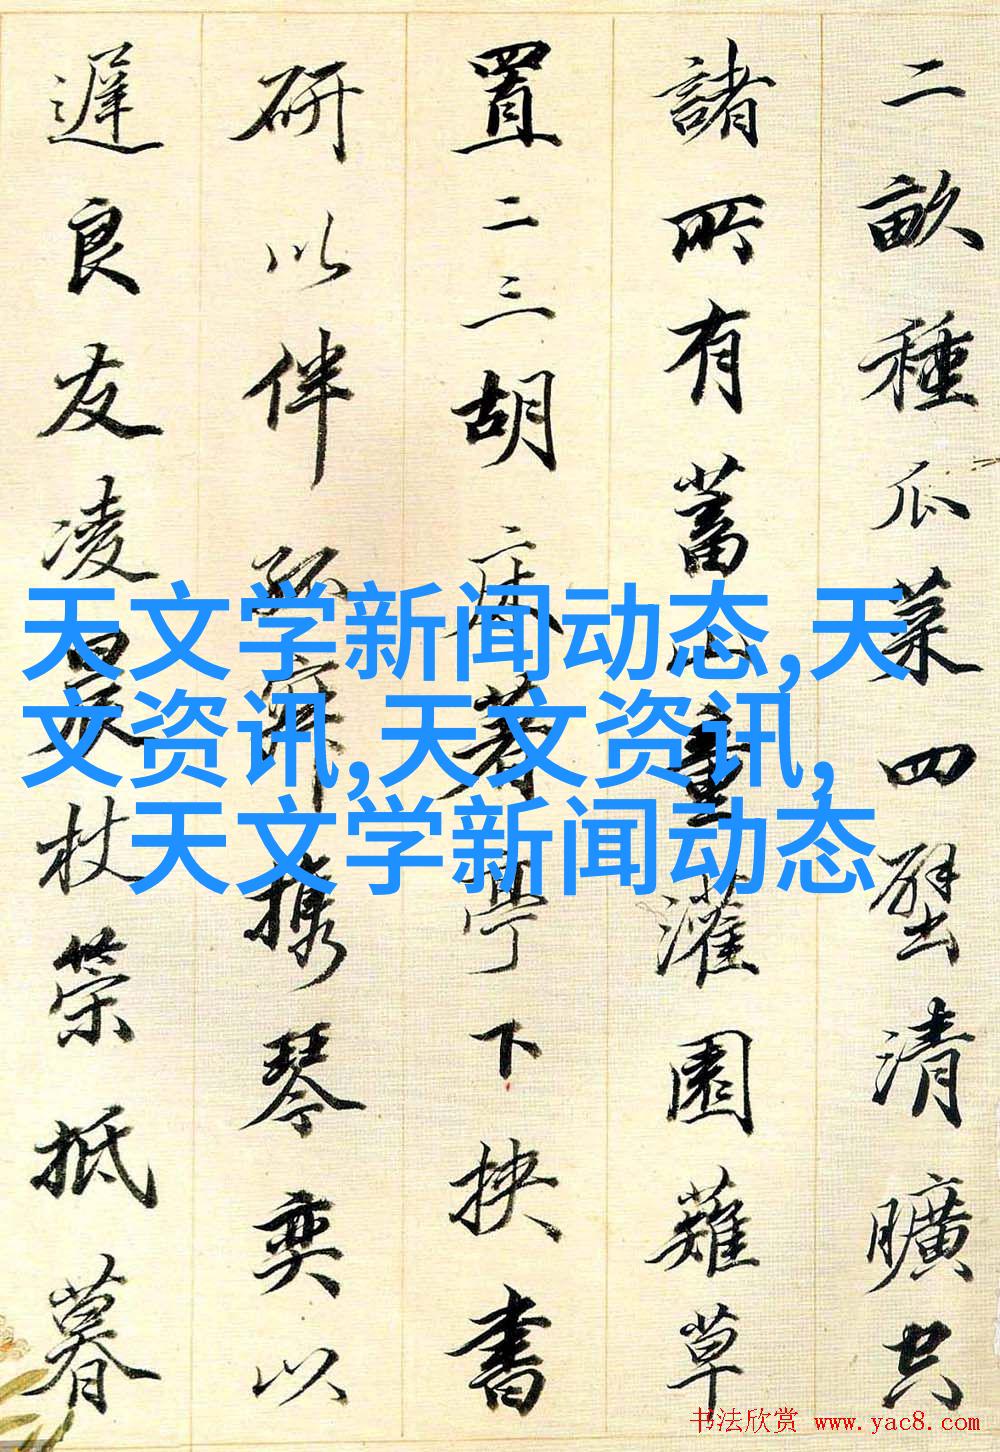 二畝種瓜菜四壁清曠空
諸所有蓄山童灌園薙草
置二三胡床著亭下挾書
研以伴孤寂攜琴奕以
遲良友凌晨杖策抵暮
天文学新闻动态,天
文资讯,天文资讯,
天文学新闻动态
书法欣赏 www.yac8.com